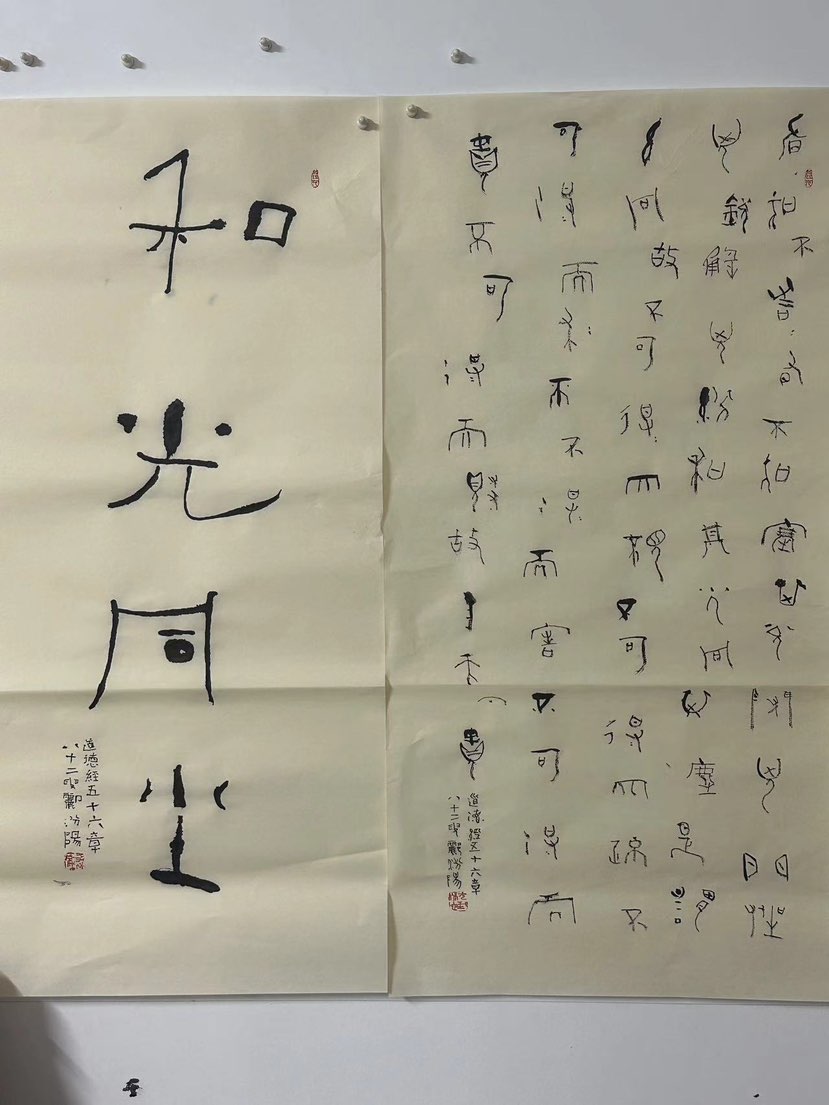 知不言者不知塞其兌閉其門挫
其銳解其紛和其光同其塵是謂
玄同故不可得而親不可得而疏不
可得而利不不得而害不可得而
貴不可得而賤故天下貴
道德經五十六章
八十二叟酈汾陽
和光同尘
道德經五十六章
八十二叟酈汾陽